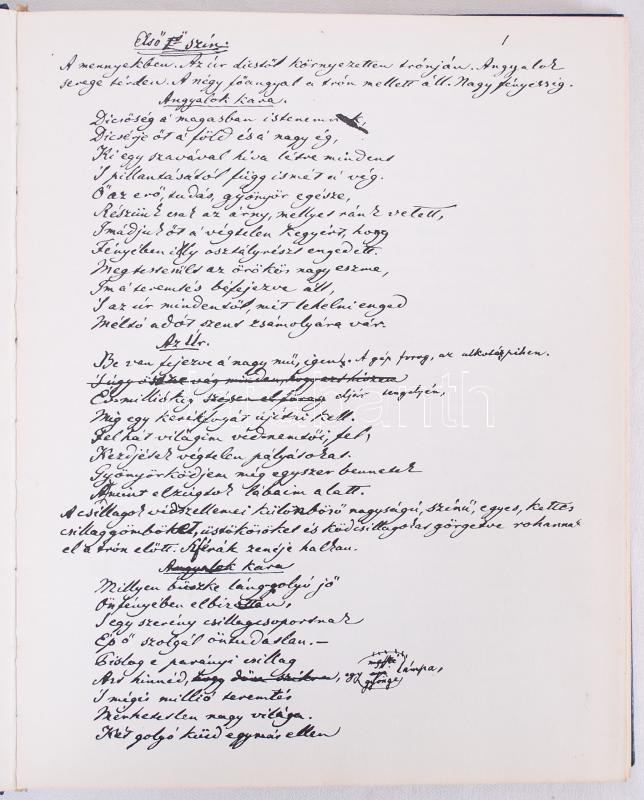 Első szín: 1
A mennyekben. Az úr dicstől környezetten trónján. Angyalok
serege térden. A négy főangyal a trón mellett áll. Nagy fényesség.
Angyalok kara.
Dicsőség a magasban istenemnek,
Dicsérje őt a' föld és a' nagy ég,
Ki egy szavával híva létre mindent
S pillantásától függ ismét a' vég.
Ő az erő, tudás, gyönyör egésze,
Részünk csak az árny, mellyet ránk vetett,
Imádjuk őt a' végtelen kegyért, hogy
Fényében illy osztályrészt engedett.
Megtestesült az örökös nagy eszme,
Im a' teremtés béfejezve áll,
S az úr mindentől, mit lehelni enged
Méltó adót szent zsámolyára vár.
Az Úr.
Be van fejezve a' nagy mű, igen. A gép forog, az alkotó pihen.
Év-milliókig eljár tengelyén,
Mig egy kerékfogát újítni kell.
Fel hát világim védnemtői, fel,
Kezdjétek végtelen pályátokat.
Gyönyörködjem még egyszer bennetek
Amint elzúgtok lábaim alatt.
A csillagok védszellemei különböző nagyságú, színű, egyes, kettős
csillaggömböket, üstököröket és ködcsillagokat görgetve rohannak
el a trón előtt. Szférák zenéje halkan.
Angyalok kara
Millyen büszke láng-golyó jő
Önfényében elbizottan,
S egy szerény csillagcsoportnak
Ép ő szolgál öntudatlan.—
Pislog e parányi csillag
Azt hinnéd, egy gyönge lámpa,
S mégis millió teremtés
Mérhetetlen nagy világa.
Két golyó küzd egymás ellen